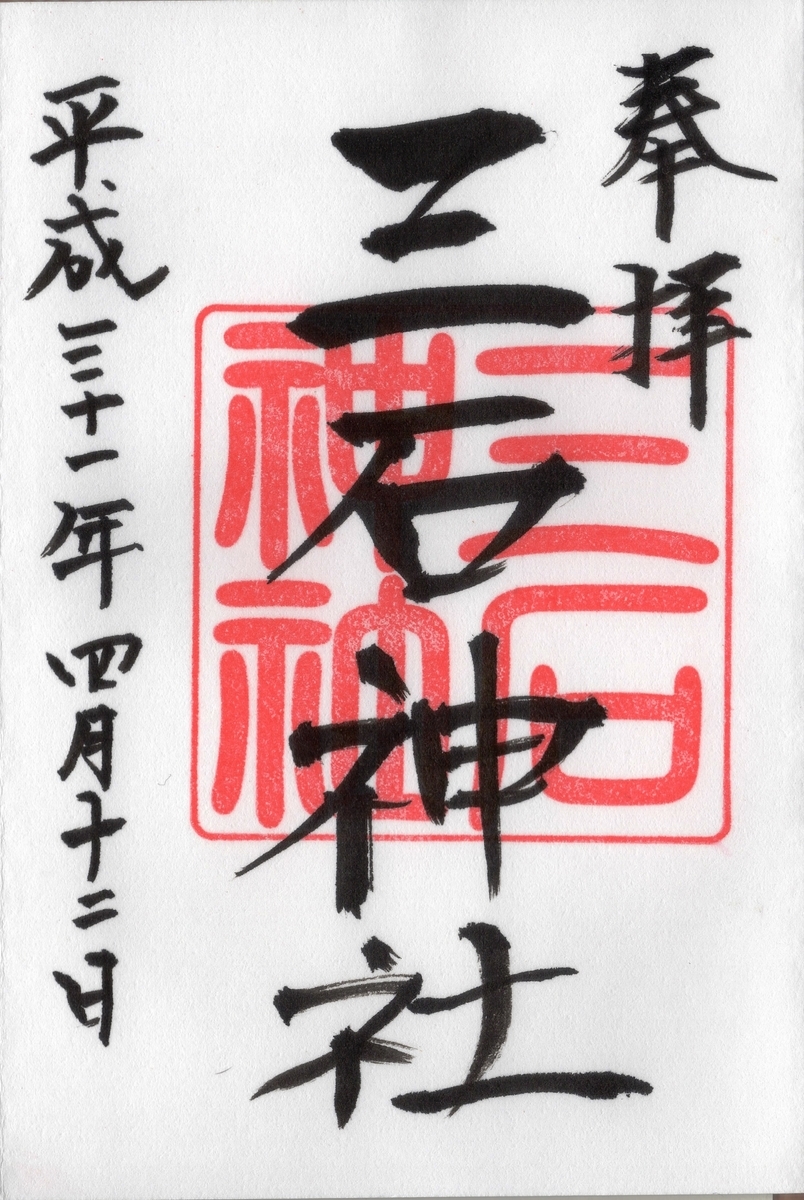 奉拝
三石神社
平成三十一年四月十二日
三石
神社